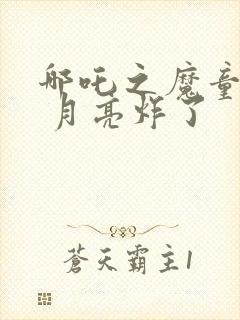 哪吒之魔童
月亮炸了
蒼天霸主1